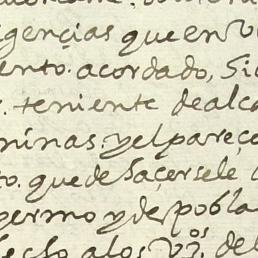 igençias que en v
ento. acordado, Si
. teniente de alca
minas. y el pareçe
to. que de haçersele
yermo y despobla
hecho a los vºs. del